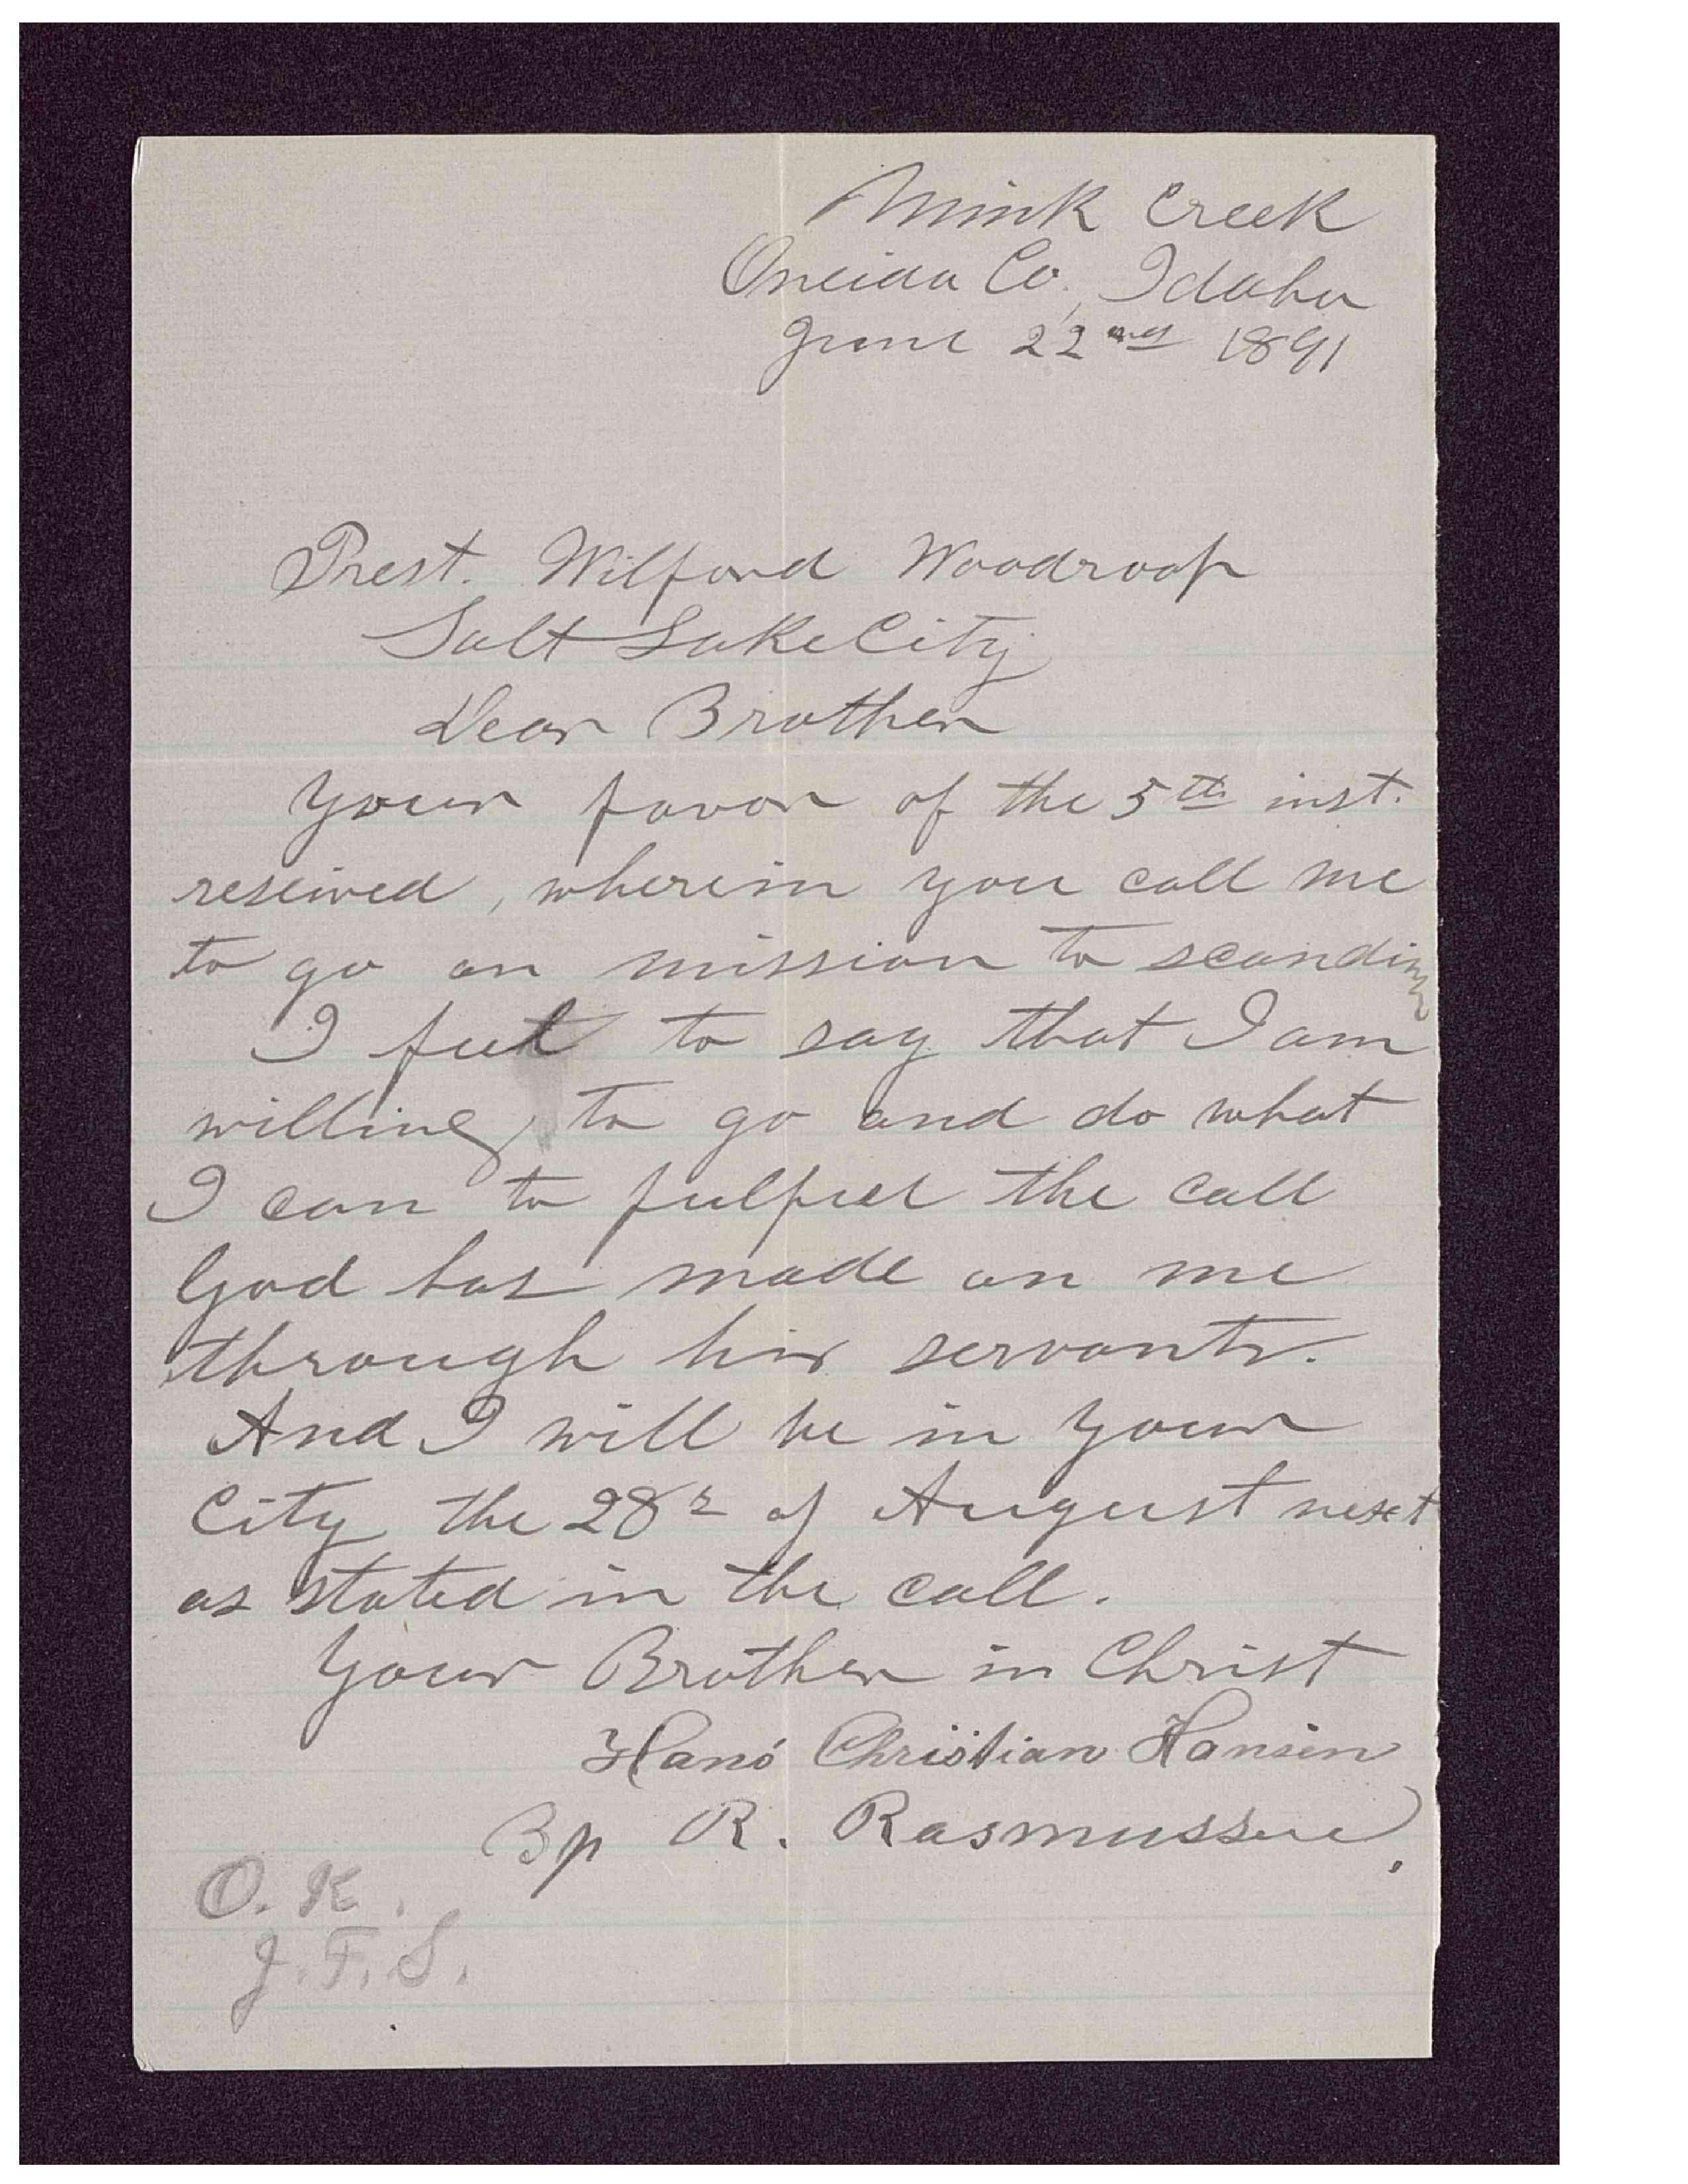 Mink Creek
Oneida Co. Idaho
June 22nd 1891
Prest. Wilford Woodroof
Salt Lake City
Dear Brother
Your favor of the 5th inst.
reseived, wherein you call me
to go on mission to scandin
I feel to say that I am
willing to go and do what
I can to fulfiel the call
God has made on me
through his servants.
And I will be in your
City the 28 of August next
as stated in the call.
Your Brother in Christ
Hans Christian Hansen
Bp R. Rasmussen,
O.K.
J.F.S.